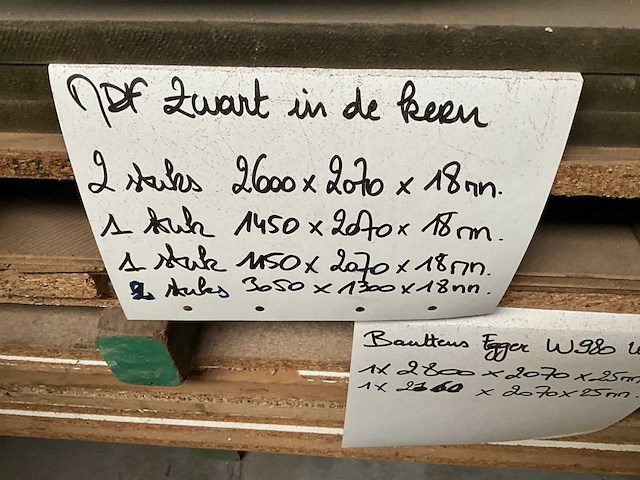 MDF Zwart in de kern
2 stuks 2600 x 2070 x 18mm.
1 stuk 1450 x 2070 x 18mm.
1 stuk 1150 x 2070 x 18mm.
2 stuks 3050 x 1300 x 18mm.
Egger W980
1x 2800 x 2070 x 25mm
1x x 2070 x 25mm.